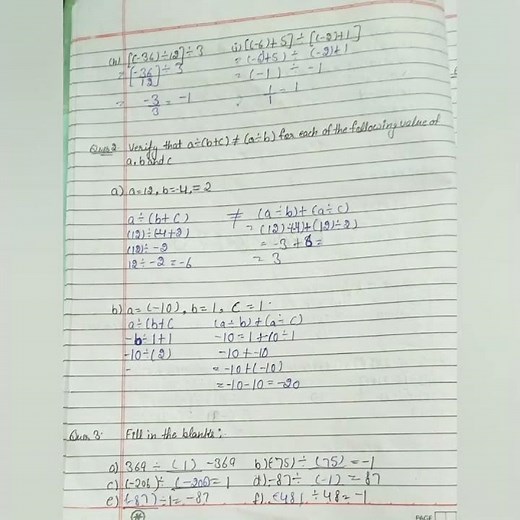 (h) [(-36)÷12]÷3
= [-36/12] ÷ 3
= -3/3 = -1
i) [(-6)+5] ÷ [(-2)+1]
= (-6+5) ÷ (-2)+1
= (-1) ÷ -1
1/1 = 1
Ques 2 Verify that a÷(b+c) ≠ (a÷b) for each of the following value of
a, b and c
a) a=12, b=-4, = 2
a÷(b+c) ≠ (a÷b)+(a÷c)
(12)÷(-4+2) = (12)÷(-4)+(12)÷2)
(12)÷ -2 = -3+6=
12÷-2 = -6 = 3
b) a=(-10), b=1, c=1.
a÷(b+c (a÷b)+(a÷c)
-10÷(2) -10+-10
- = -10+(-10)
= -10-10 = -20
Ques 3. Fill in the blanks:
a) 369 ÷ (1) -369 b) (-75) ÷ (75) = -1
c) (-206) ÷ (-206) = 1 d) -87 ÷ (-1) = 87
e) (-87) ÷ 1 = -87 f) (-48) ÷ 48 = -1
PAGE